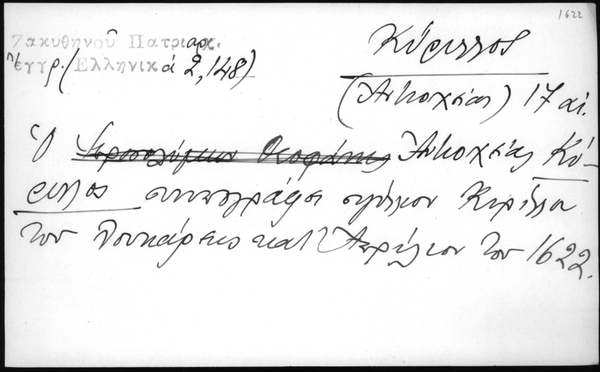 1622
Ζακυθηνοῦ Πατριαρχ.
ἔγγρ. (Ἑλληνικά 2,148)
Κύριλλος
(Ἀντιοχείας) 17 αἰ.
Ὁ Ἱεροσολύμων Θεοφάνης Ἀντιοχείας Κύ-
ριλλος συνυπογράφει σιγίλλιον Κυρίλλου
τοῦ Λουκάρεως κατ' Ἀπρίλιον τοῦ 1622.